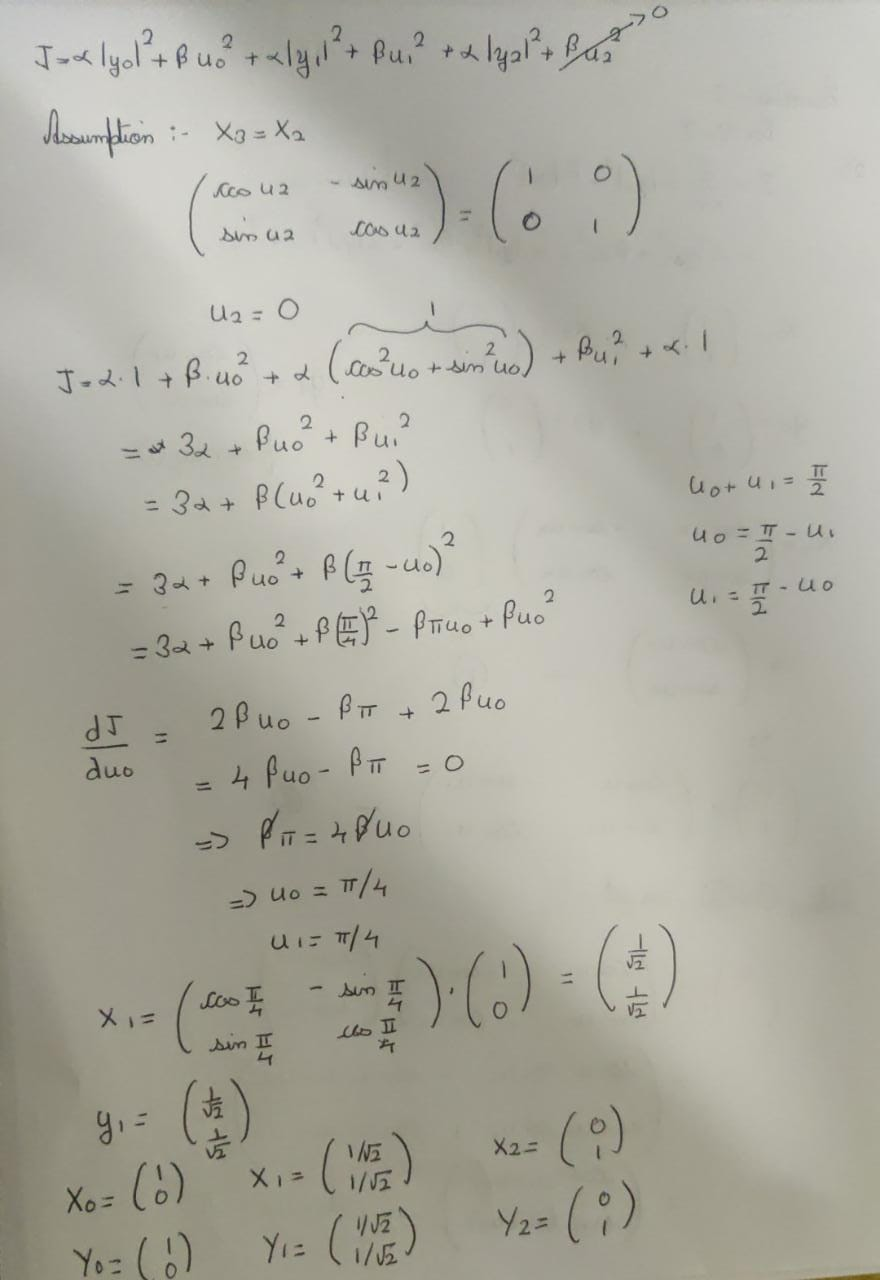 J = α|y₀|² + βu₀² + α|y₁|² + βu₁² + α|y₂|² + βu₂² → 0
Assumption :- X₃ = X₂
( cos u₂  - sin u₂ ) = ( 1  0 )
( sin u₂  cos u₂ )   ( 0  1 )
u₂ = 0
1
J = α·1 + β·u₀² + α (cos²u₀ + sin²u₀) + βu₁² + α·1
= 3α + βu₀² + βu₁²
= 3α + β(u₀² + u₁²)
u₀ + u₁ = π/2
= 3α + βu₀² + β(π/2 - u₀)²
u₀ = π/2 - u₁
u₁ = π/2 - u₀
= 3α + βu₀² + β(π/4)² - βπu₀ + βu₀²
dJ/du₀ = 2βu₀ - βπ + 2βu₀
= 4βu₀ - βπ = 0
=> βπ = 4βu₀
=> u₀ = π/4
u₁ = π/4
X₁ = ( cos π/4  - sin π/4 ) · ( 1 ) = ( 1/√2 )
( sin π/4  cos π/4 )   ( 0 )   ( 1/√2 )
y₁ = ( 1/√2 )
( 1/√2 )
X₀ = ( 1 )  X₁ = ( 1/√2 )  X₂ = ( 0 )
( 0 )  ( 1/√2 )  ( 1 )
Y₀ = ( 1 )  Y₁ = ( 1/√2 )  Y₂ = ( 0 )
( 0 )  ( 1/√2 )  ( 1 )